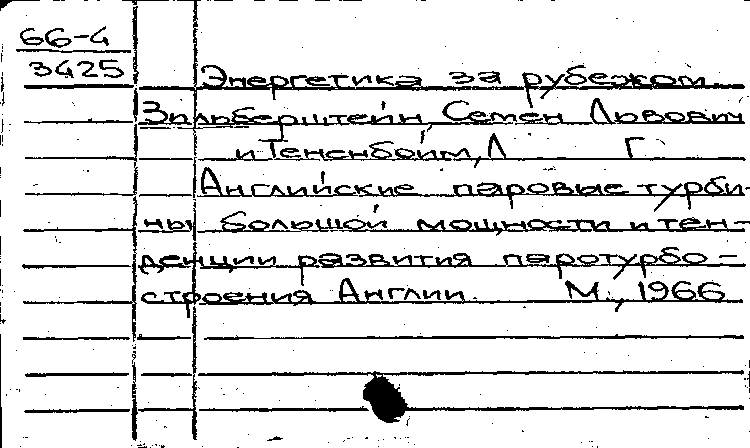 66-4
3425
Энергетика за рубежом.
Зильберштейн, Семен Львович
и Тененбойм, Л. Г.
Английские паровые турби-
ны большой мощности и тен-
денции развития паротурбо-
строения Англии. М., 1966